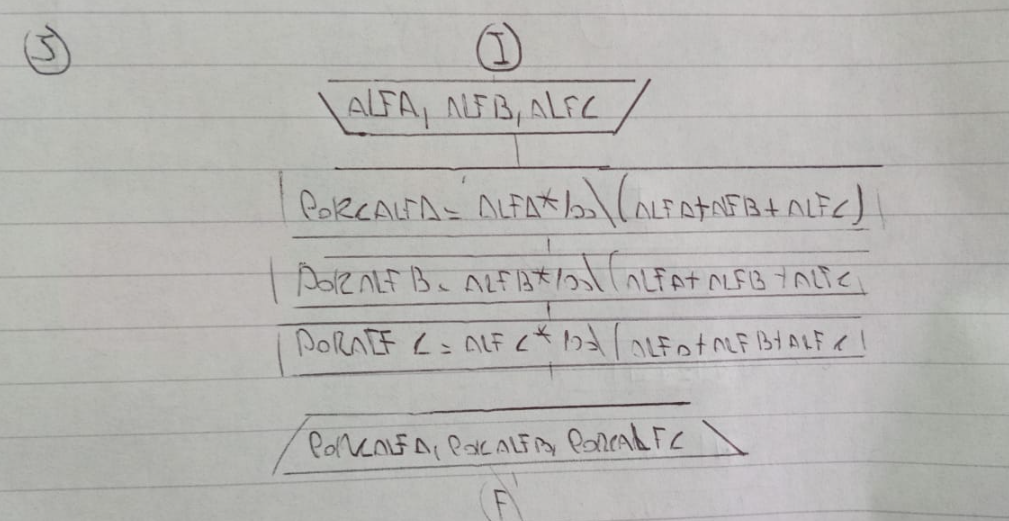 5
I
ALFA, ALFB, ALFC
PORCALFA = ALFA*100\(ALFA+ALFB+ALFC)
PORALFB = ALFB*100\(ALFA+ALFB+ALFC
PORALF C = ALFC*100\(ALFA+ALFB+ALFC)
PORCALFA, PORCALFB, PORCALFC
F